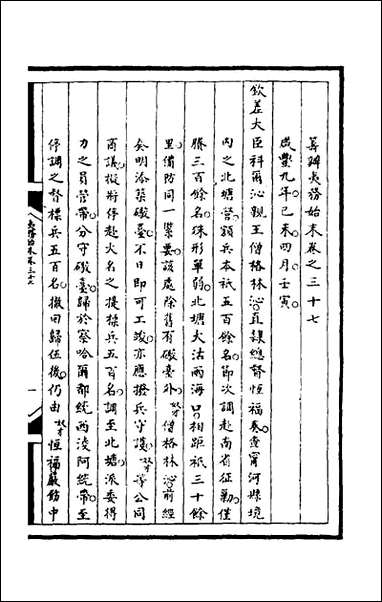 籌辦夷務始末卷之三十七
咸豐九年己未四月壬寅
欽差大臣科爾沁親王僧格林沁直隸總督恆福奏查甯河縣境
內之北塘營額兵本祇五百餘名節次調赴南省征勦僅
賸三百餘名殊形單弱北塘大沽兩海口相距祇三十餘
里備防同一緊要該處除舊有礮臺外奴才僧格林沁前經
奏明添築礮臺不日即可工竣亦應撥兵守護奴才等公同
商議擬將停赴大名之提標兵五百名調至北塘派委得
力之員管帶分守礮臺歸於察哈爾都統西淩阿統帶至
停調之督標兵五百名撤回歸伍後仍由奴才恆福嚴飭中
夷務始末卷三十七
一